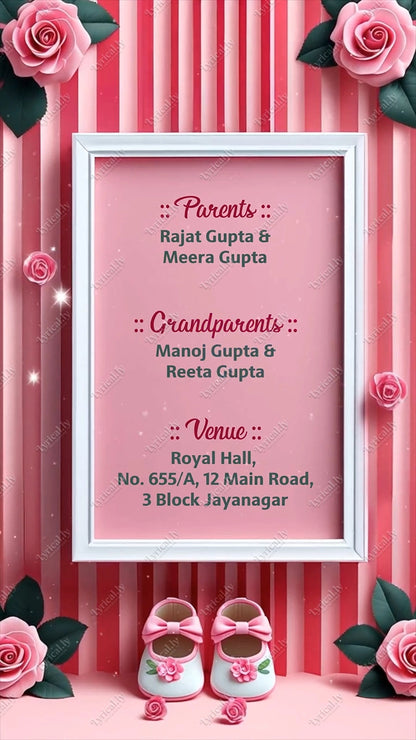 :: Parents ::
Rajat Gupta &
Meera Gupta
:: Grandparents ::
Manoj Gupta &
Reeta Gupta
:: Venue ::
Royal Hall,
No. 655/A, 12 Main Road,
3 Block Jayanagar